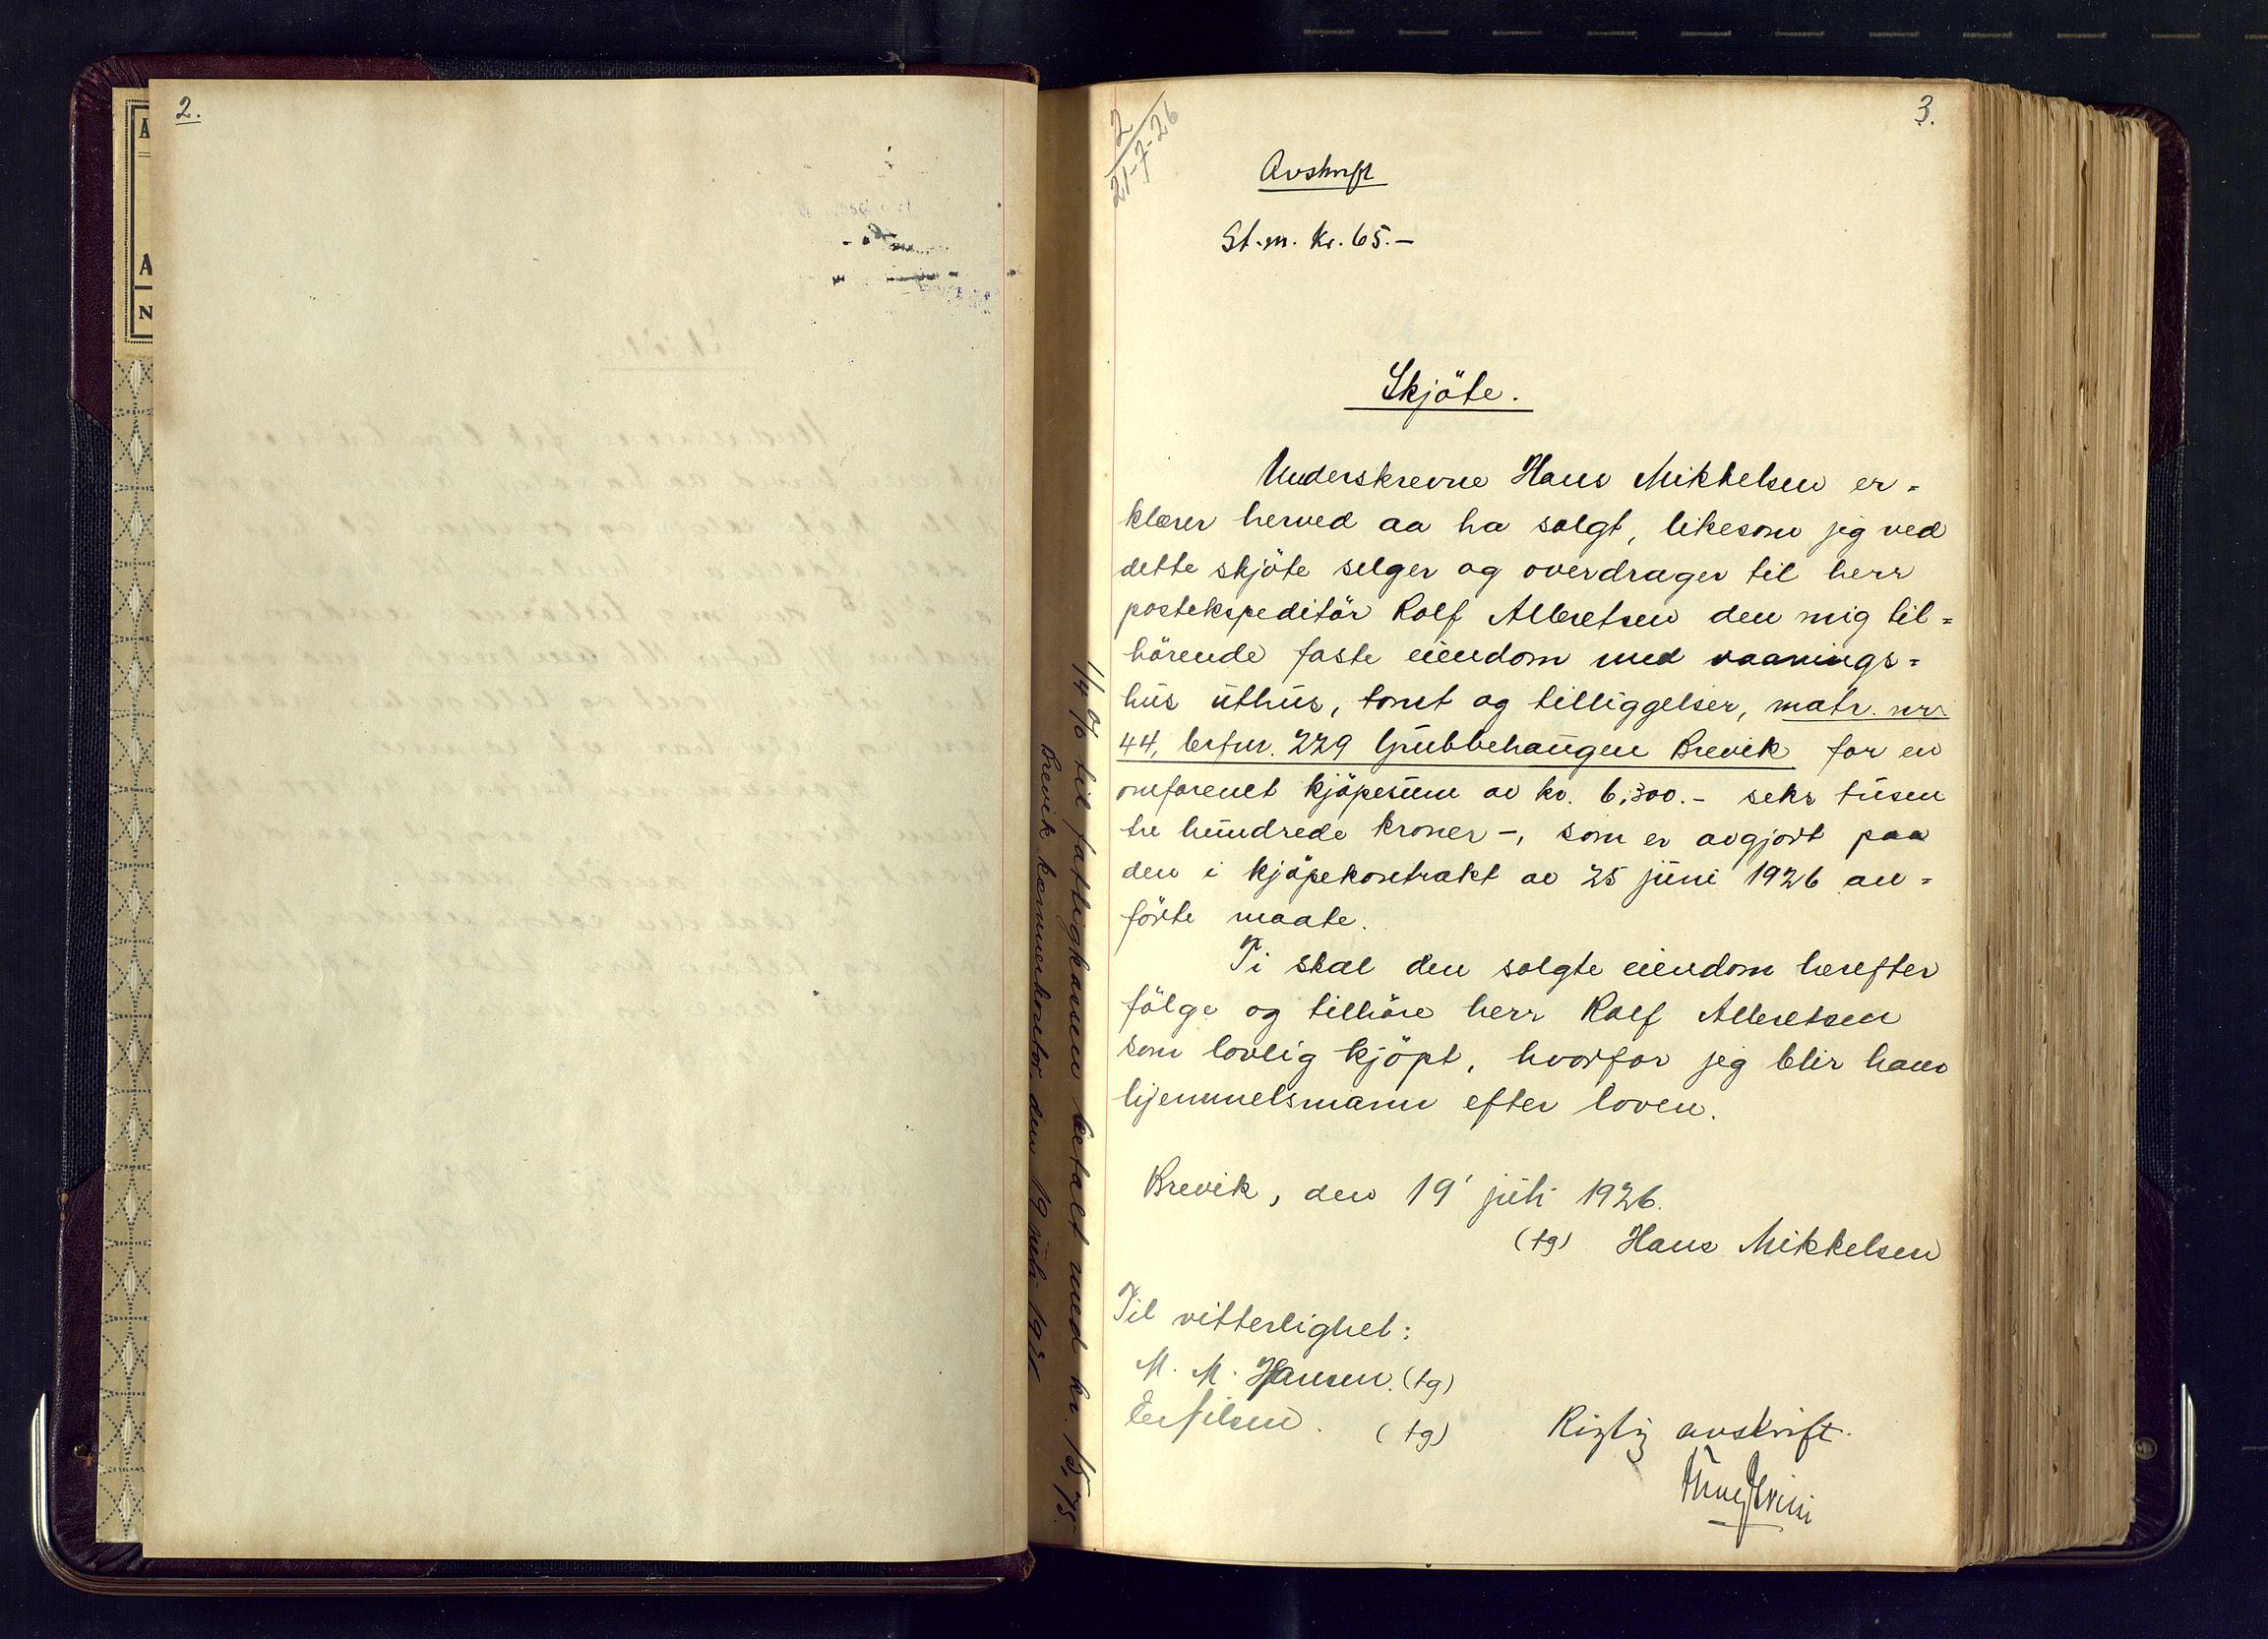 2.
3.
2
21-7-26
Avskrift
St.m. kr. 65.-
Skjöte.
Underskrevne Hans Mikkelsen er=
klærer herved aa ha solgt, likesom jeg ved
dette skjöte selger og overdrager til herr
postekspeditör Rolf Albretsen den mig til=
hörende faste eiendom med vaanings=
hus uthus, tomt og tilliggelser, matr. nr.
44, brfnr. 229 Grubbehaugen Brevik for en
omforenet kjöpesum av kr. 6,300.- seks tusen
tre hundrede kroner -, som er avgjort paa
den i kjöpekontrakt av 25 juni 1926 an=
förte maate.
Ti skal den solgte eiendom herefter
fölge og tilhöre herr Rolf Albretsen
som lovlig kjöpt, hvorfor jeg blir hans
hjemmelsmann efter loven.
Brevik, den 19' juli 1926.
(tg) Hans Mikkelsen
Til vitterlighet:
M. M. Hansen. (tg)
(tg)
Rigtig avskrift.
1/4 % til fattigkassen betalt med kr. 15,75.
Brevik kæmnerkontor den 19 juli 1926